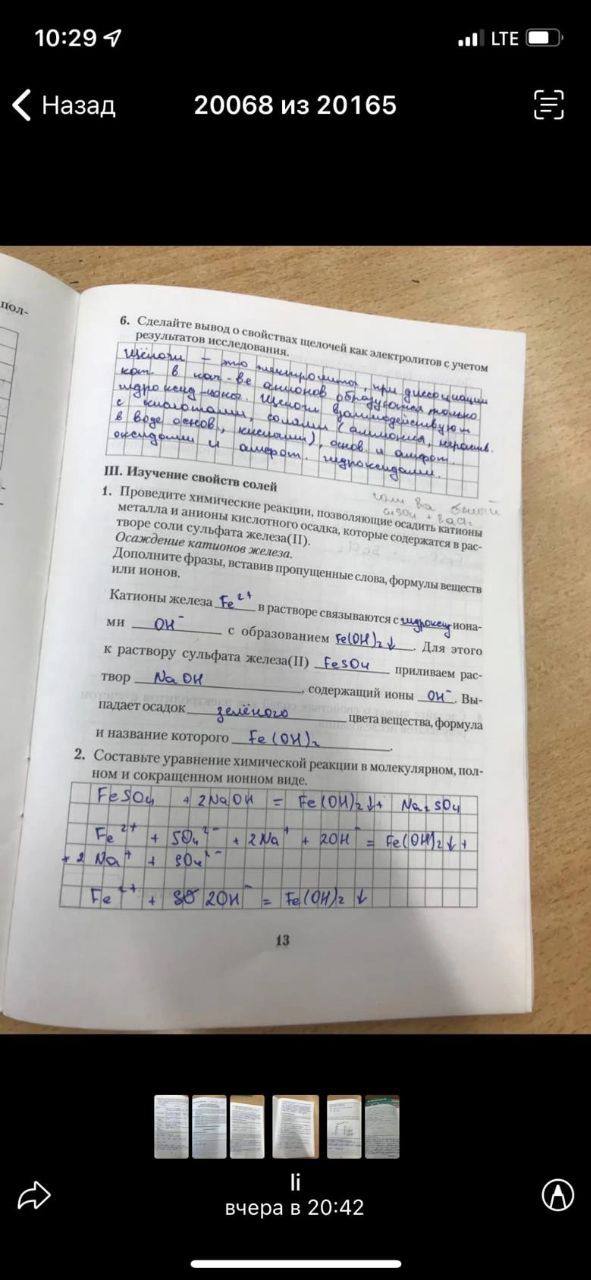 10:29
LTE
Назад
20068 из 20165
пол-
6. Сделайте вывод о свойствах щелочей как электролитов с учетом
результатов исследования.
Щёлочи – это электролиты, при диссоциации
кот. в кач-ве анионов образуются только
гидроксид-ионы. Щёлочи взаимодействуют
с кислотами, солями (аммония, нераств.
в воде основ, кислыми), основ. и амфот.
оксидами и амфот. гидроксидами.
III. Изучение свойств солей
1. Проведите химические реакции, позволяющие осадить катионы
металла и анионы кислотного осадка, которые содержатся в рас-
творе соли сульфата железа(II).
Осаждение катионов железа.
Дополните фразы, вставив пропущенные слова, формулы веществ
или ионов.
Катионы железа Fe²⁺ в растворе связываются с гидроксид иона-
ми OH⁻ с образованием Fe(OH)₂↓. Для этого
к раствору сульфата железа(II) FeSO₄ приливаем рас-
твор NaOH, содержащий ионы OH⁻. Вы-
падает осадок зелёного цвета вещества, формула
и название которого Fe(OH)₂.
2. Составьте уравнение химической реакции в молекулярном, пол-
ном и сокращенном ионном виде.
FeSO₄ + 2NaOH = Fe(OH)₂↓ + Na₂SO₄
Fe²⁺ + SO₄²⁻ + 2Na⁺ + 2OH⁻ = Fe(OH)₂↓ +
+ 2Na⁺ + SO₄²⁻
Fe²⁺ + 2OH⁻ = Fe(OH)₂↓
13
li
вчера в 20:42